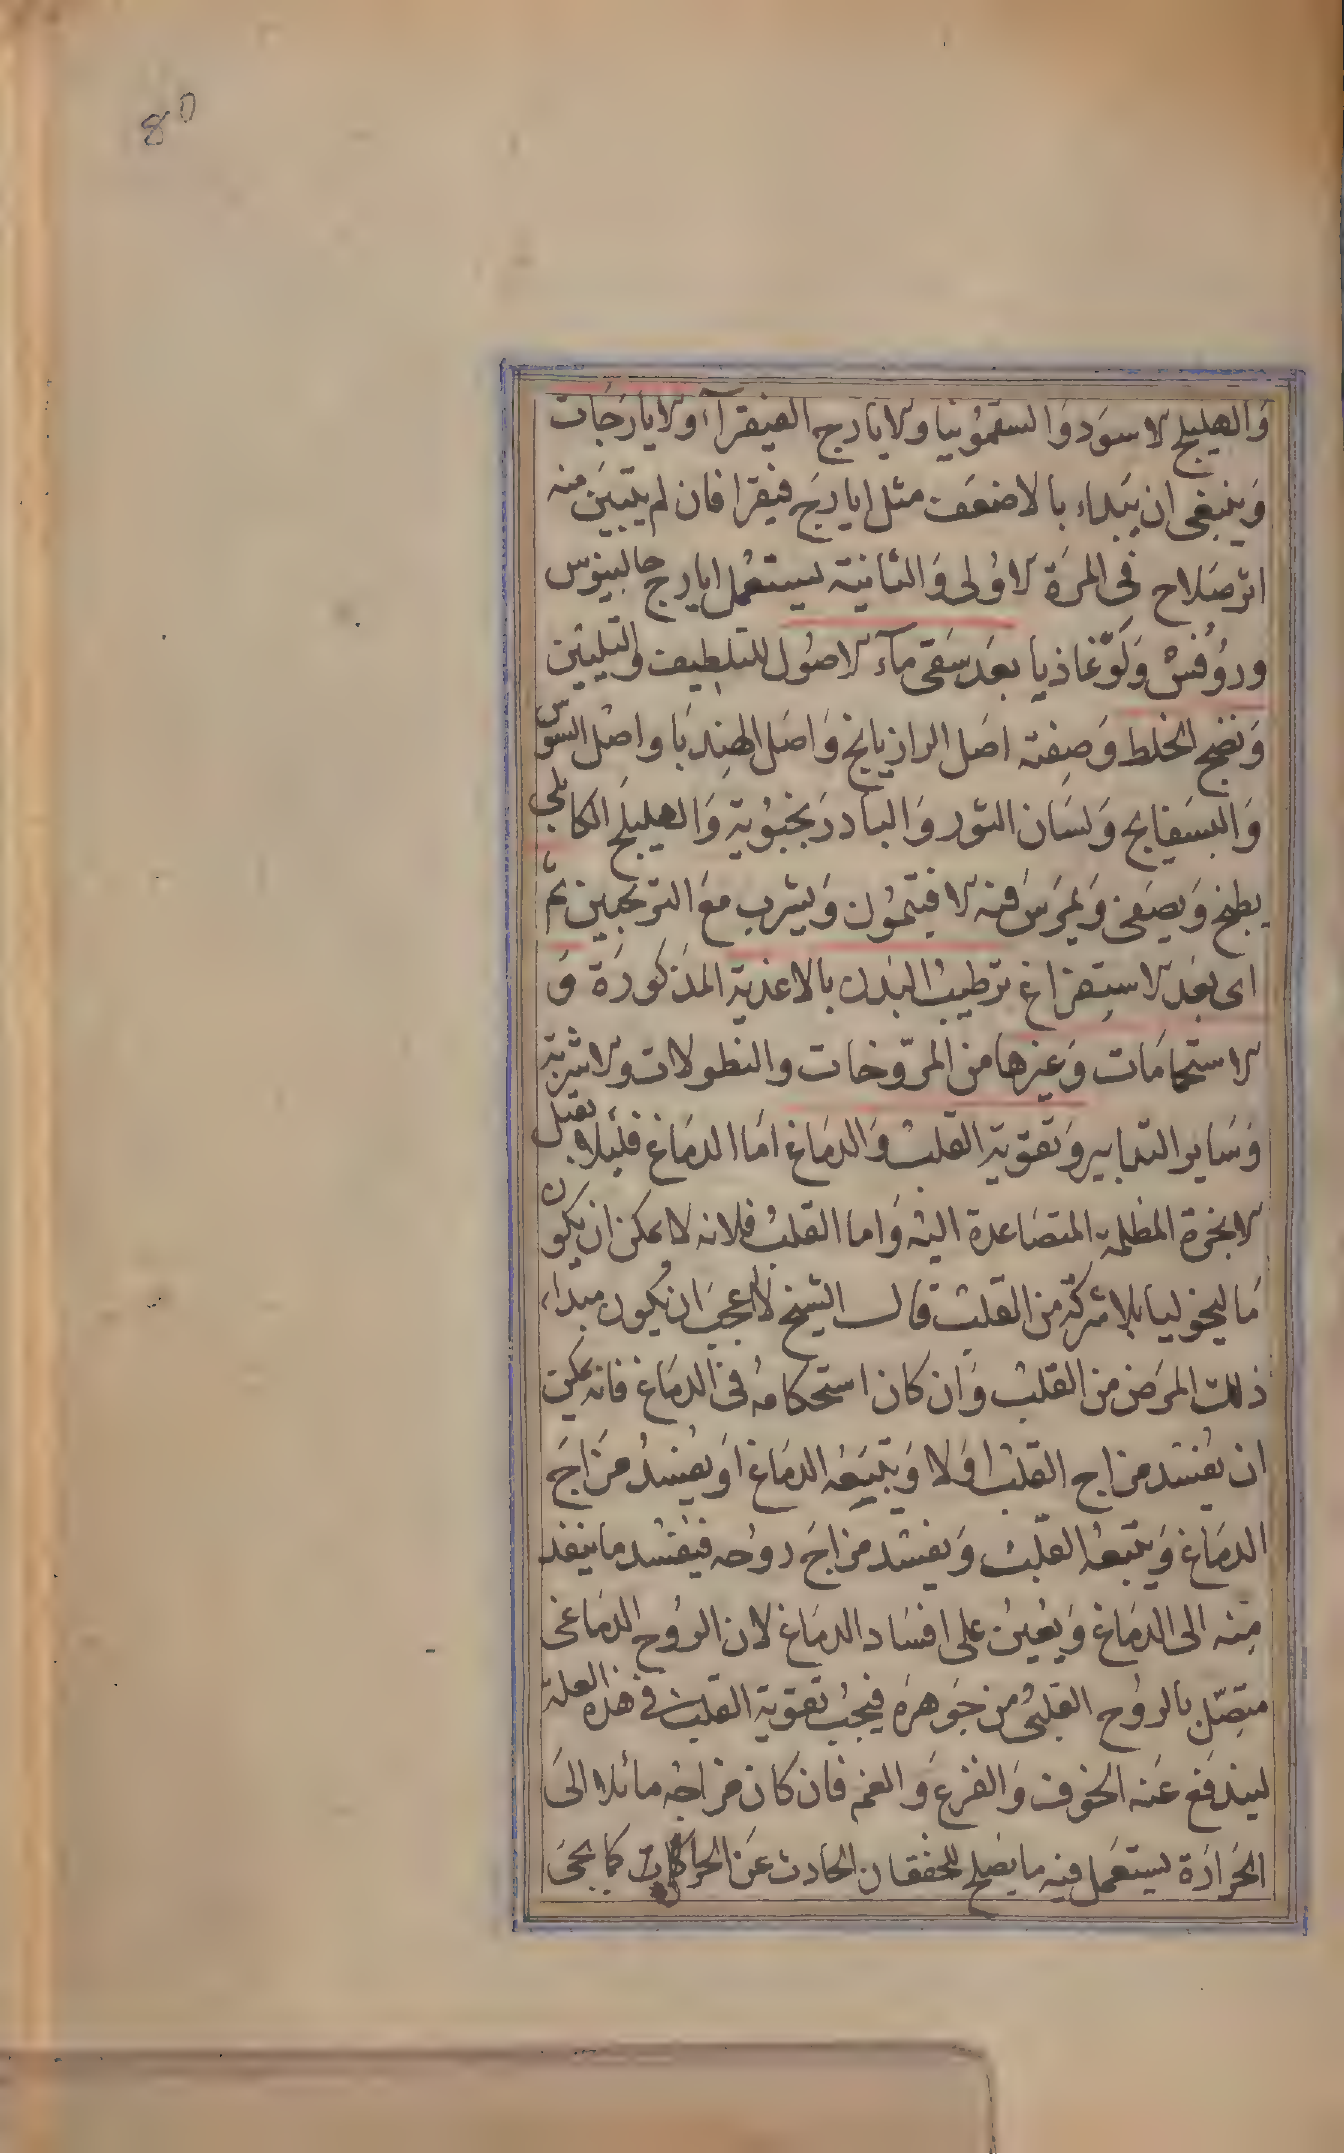 80
وَالهليلج الاسوَد وَالسقمُونيا والايارج الفيقرآء والايارجَات
وَينبغى ان يبَداء بالاضعَف مثل ايارجَ فيقرا فان لم يتبيَن منه
اثر صَلاح فى المرَة الاوُلى وَالثانيَة يستعمُل ايارج جالينوس
وروُفسْ وَلَوغاذيا بعَد سَقى مآء الاصُول للتلطيف والتليين
وَنضج الخلط وَصفته اصَل الرازيانج وَاصَل الهندبَا واصْل السوس
وَالبسَفايج وَلسَان الثور وَالبادرَنجبُوية وَالهليلج الكابلى
يطبخ وَيصَفى وَيمرَسَ فيه الافيتمُون وَيشرب مَعَ الترنجبين ثم
اى بعَد الاستفراغ ترطيبُ البَدن بالاغذية المذكورَة وَ
الاستحمامَات وَغيرها من المرّوخات والنطولات والاشربة
وَسَاير التدابير وَتقوية القلب وَالدمَاغ امَا الدمَاغ فلئلا يقبل
الابخرة المظلمة المتصَاعدة اليْه وَاما القلبُ فلانه لا يمكن ان يكون
مَاليخوليا بلا شركة من القلبْ قال الشيخ لا عجبَ ان يكون مبداء
ذلك المرَض من القلبْ وَان كان استحكامهُ فى الدمَاغ فانه يمكن
ان يفسُد مزاج القلبْ اوَلا وَيتبَعهُ الدمَاغ اوَ يفسُدُ مزَاجَ
الدمَاغ وَيتبعهُ القلبْ وَيفسُد مزاجَ روحه فيَفسُد ما ينفذ
منه الى الدمَاغ وَيعُين على افسَاد الدمَاغ لان الروُح الدمَاغى
متصّل بالروُح القلبىْ من جَوهرَه فيجبُ تقوية القلبْ فى هذه العلة
ليندفع عَنه الخوف وَالفزعَ والغم فان كان مزاجهُ مائلا الىَ
الحَرارَة يستعمَل فيه ما يصَلح للخفقان الحادث عَن الحرارت كما يجىَ